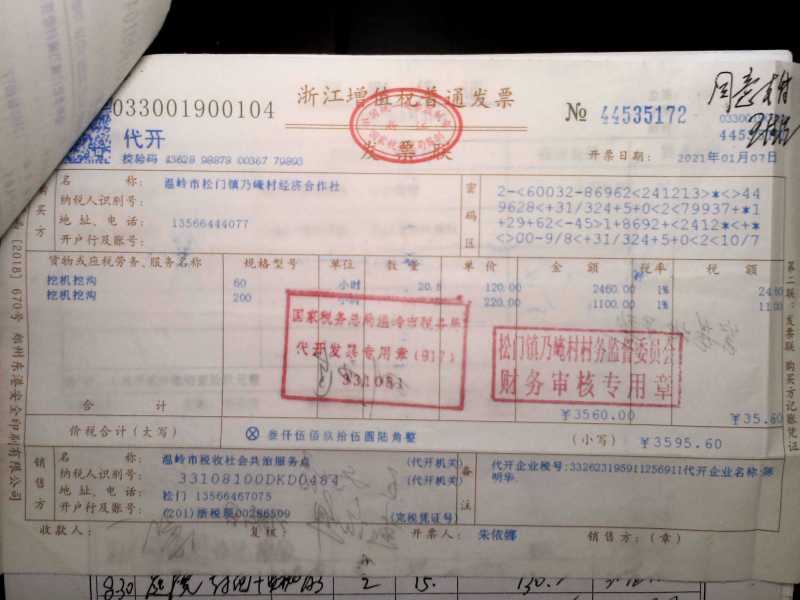 033001900104
浙江增值税普通发票
№ 44535172
同意支付
代开
发票联
校验码 43628 98879 00367 79893
开票日期: 2021年01月07日
购买方
名 称: 温岭市松门镇乃崦村经济合作社
纳税人识别号:
地址、电话: 13566444077
开户行及账号:
密码区
2-<60032-86962<241213>*<>44
9628<+31/324+5+0<2<79937+*1
+29+62<-45>1+8692+<2412*<+*
<>00-9/8<+31/324+5+0<2<10/7
货物或应税劳务、服务名称 规格型号 单位 数量 单价 金额 税率 税额
挖机挖沟 60 小时 20.5 120.00 2460.00 1%
挖机挖沟 200 小时 220.00 1100.00 1%
国家税务总局温岭市税务局
代开发票专用章(917)
331081
松门镇乃崦村村务监督委员会
财务审核专用章
合计 ¥3560.00 ¥35.60
价税合计(大写) ⊗ 叁仟伍佰玖拾伍圆陆角整 (小写) ¥3595.60
销售方
名 称: 温岭市税收社会共治服务点 (代开机关)
纳税人识别号: 33108100DKD0484 (代开机关)
地址、电话: 松门 13566467075
开户行及账号: (201)浙税票00286509 (完税凭证号)
备注
代开企业税号:332623195911256911代开企业名称:陈
明华
收款人: 复核: 开票人: 朱依娜 销售方:(章)
第二联:发票联 购买方记账凭证
(2018)670号 郑州东港安全印刷有限公司